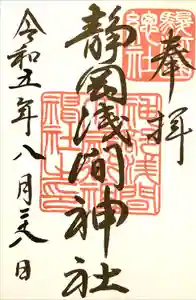 奉拝
静岡浅間神社
令和五年八月二八日